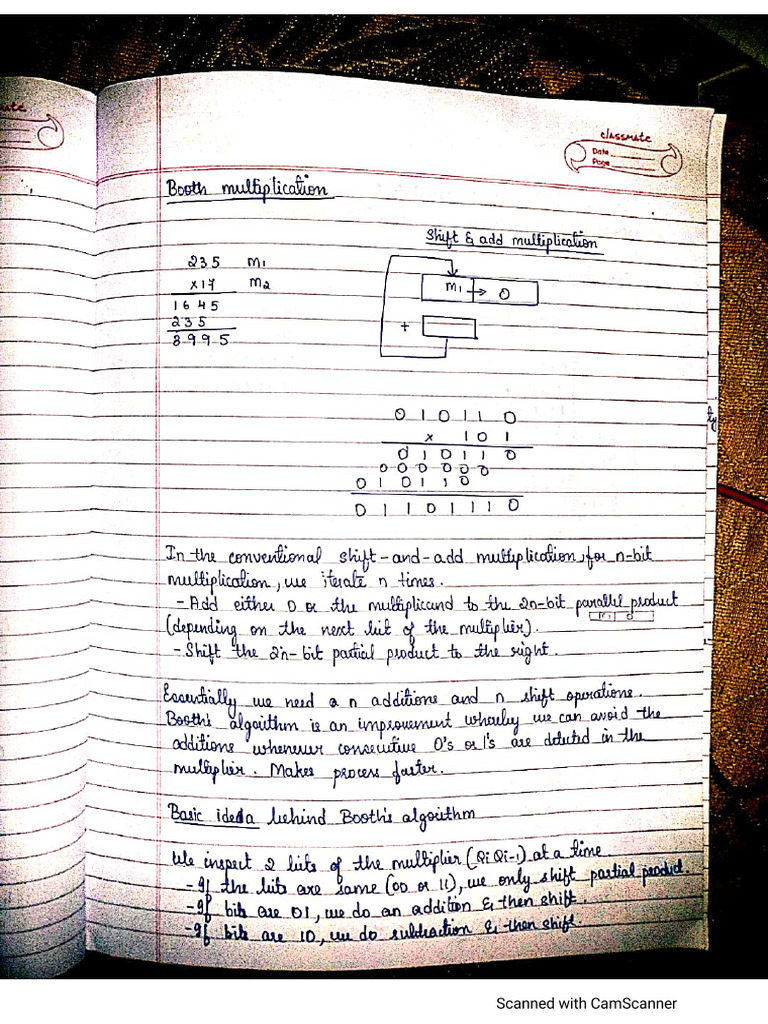 classmate
Date
Page
Booth multiplication
Shift & add multiplication
235 M1
x17 M2
1645
235
3995
M1 → 0
+
0 1 0 1 1 0
x 1 0 1
0 1 0 1 1 0
0 0 0 0 0 0
0 1 0 1 1 0
0 1 1 0 1 1 1 0
In the conventional shift-and-add multiplication, for n-bit
multiplication, we iterate n times.
- Add either 0 or the multiplicand to the 2n-bit parallel product
M1 0
(depending on the next bit of the multiplier).
- Shift the 2n-bit partial product to the right.
Essentially we need a n additions and n shift operations.
Booth's algorithm is an improvement whereby we can avoid the
additions whenever consecutive 0's or 1's are detected in the
multiplier. Makes process faster.
Basic idea behind Booth's algorithm
We inspect 2 bits of the multiplier (Qi Qi-1) at a time
- If the bits are same (00 or 11), we only shift partial product.
- If bits are 01, we do an addition & then shift.
- If bits are 10, we do subtraction & then shift.
Scanned with CamScanner